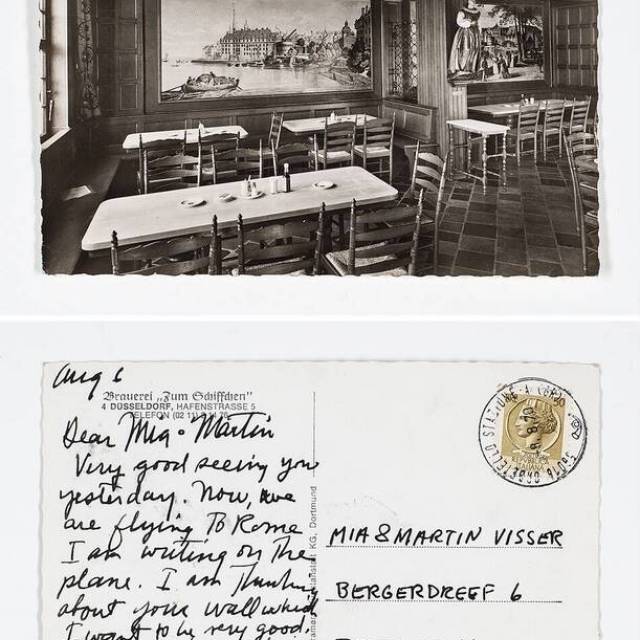 Aug 6
Brauerei „Zum Schiffchen"
4 DÜSSELDORF, HAFENSTRASSE 5
TELEFON (02 11)
Dear Mia & Martin
Very good seeing you
yesterday. Now, we
are flying To Rome
I am writing on the
plane. I am Thinking
about your wall which
I want to be very good.
KG, Dortmund
MIA & MARTIN VISSER
BERGERDREEF 6